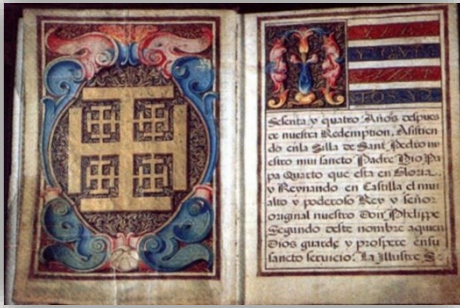 Sesenta y quatro Años despues
de nuestra Redemption, Asistien
do en la Silla de Sant Pedro nu
estro mui sancto Padre Pio Pa
pa Quarto que esta en Gloria.
y Reynando en Castilla el mui
alto y poderoso Rey y señor
original nuestro Don Phelippe
Segundo deste nombre a quien
Dios guarde y prospere en su
sancto seruicio. La Illustre S